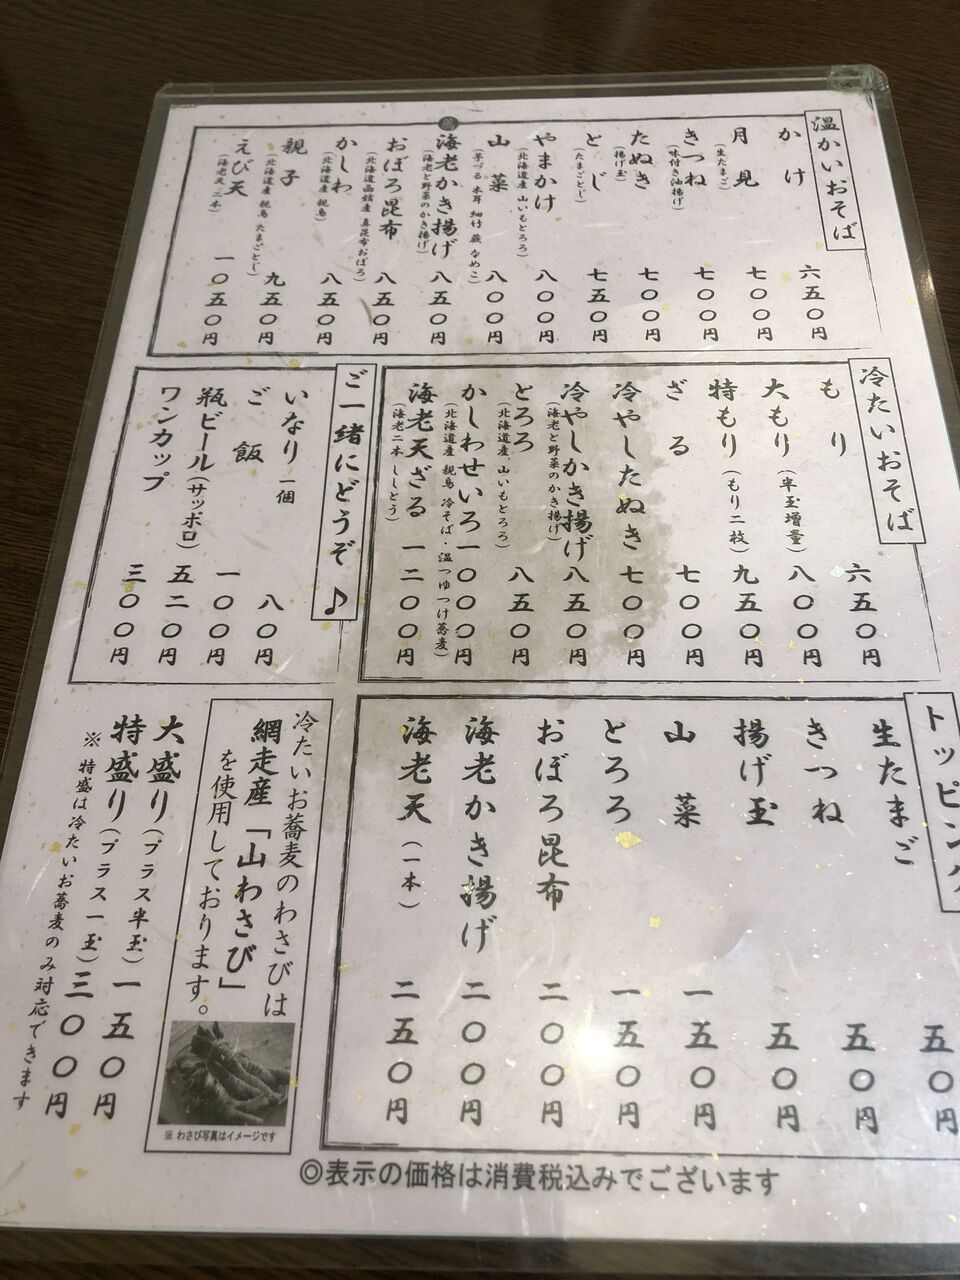 温かいおそば
かけ 六五〇円
月見(生たまご) 七〇〇円
きつね(味付き油揚げ) 七〇〇円
たぬき(揚げ玉) 七〇〇円
とじ(たまごとじ) 七五〇円
やまかけ(北海道産 山いもとろろ) 八〇〇円
山菜(芋づる 木耳 細竹 蕨 なめこ) 八〇〇円
海老かき揚げ(海老と野菜のかき揚げ) 八五〇円
おぼろ昆布(北海道函館産 真昆布おぼろ) 八五〇円
かしわ(北海道産 親鳥) 八五〇円
親子(北海道産 親鳥 たまごとじ) 九五〇円
えび天(海老天 二本) 一〇五〇円
冷たいおそば
もり 六五〇円
大もり(半玉増量) 八〇〇円
特もり(もり二枚) 九五〇円
ざる 七〇〇円
冷やしたぬき 七〇〇円
冷やしかき揚げ(海老と野菜のかき揚げ) 八五〇円
とろろ(北海道産、山いもとろろ) 八五〇円
かしわせいろ(北海道産 親鳥 冷そば・温つゆつけ蕎麦) 一〇〇〇円
海老天ざる(海老二本 ししとう) 一二〇〇円
ご一緒にどうぞ♪
いなり 一個 八〇円
ご飯 一〇〇円
瓶ビール(サッポロ) 五二〇円
ワンカップ 三〇〇円
トッピング
生たまご 五〇円
きつね 五〇円
揚げ玉 五〇円
山菜 一五〇円
とろろ 一五〇円
おぼろ昆布 二〇〇円
海老かき揚げ 二〇〇円
海老天(一本) 二五〇円
冷たいお蕎麦のわさびは
網走産「山わさび」
を使用しております。
※ わさび写真はイメージです
大盛り(プラス半玉) 一五〇円
特盛り(プラス一玉) 三〇〇円
※ 特盛は冷たいお蕎麦のみ対応できます
◎表示の価格は消費税込みでございます